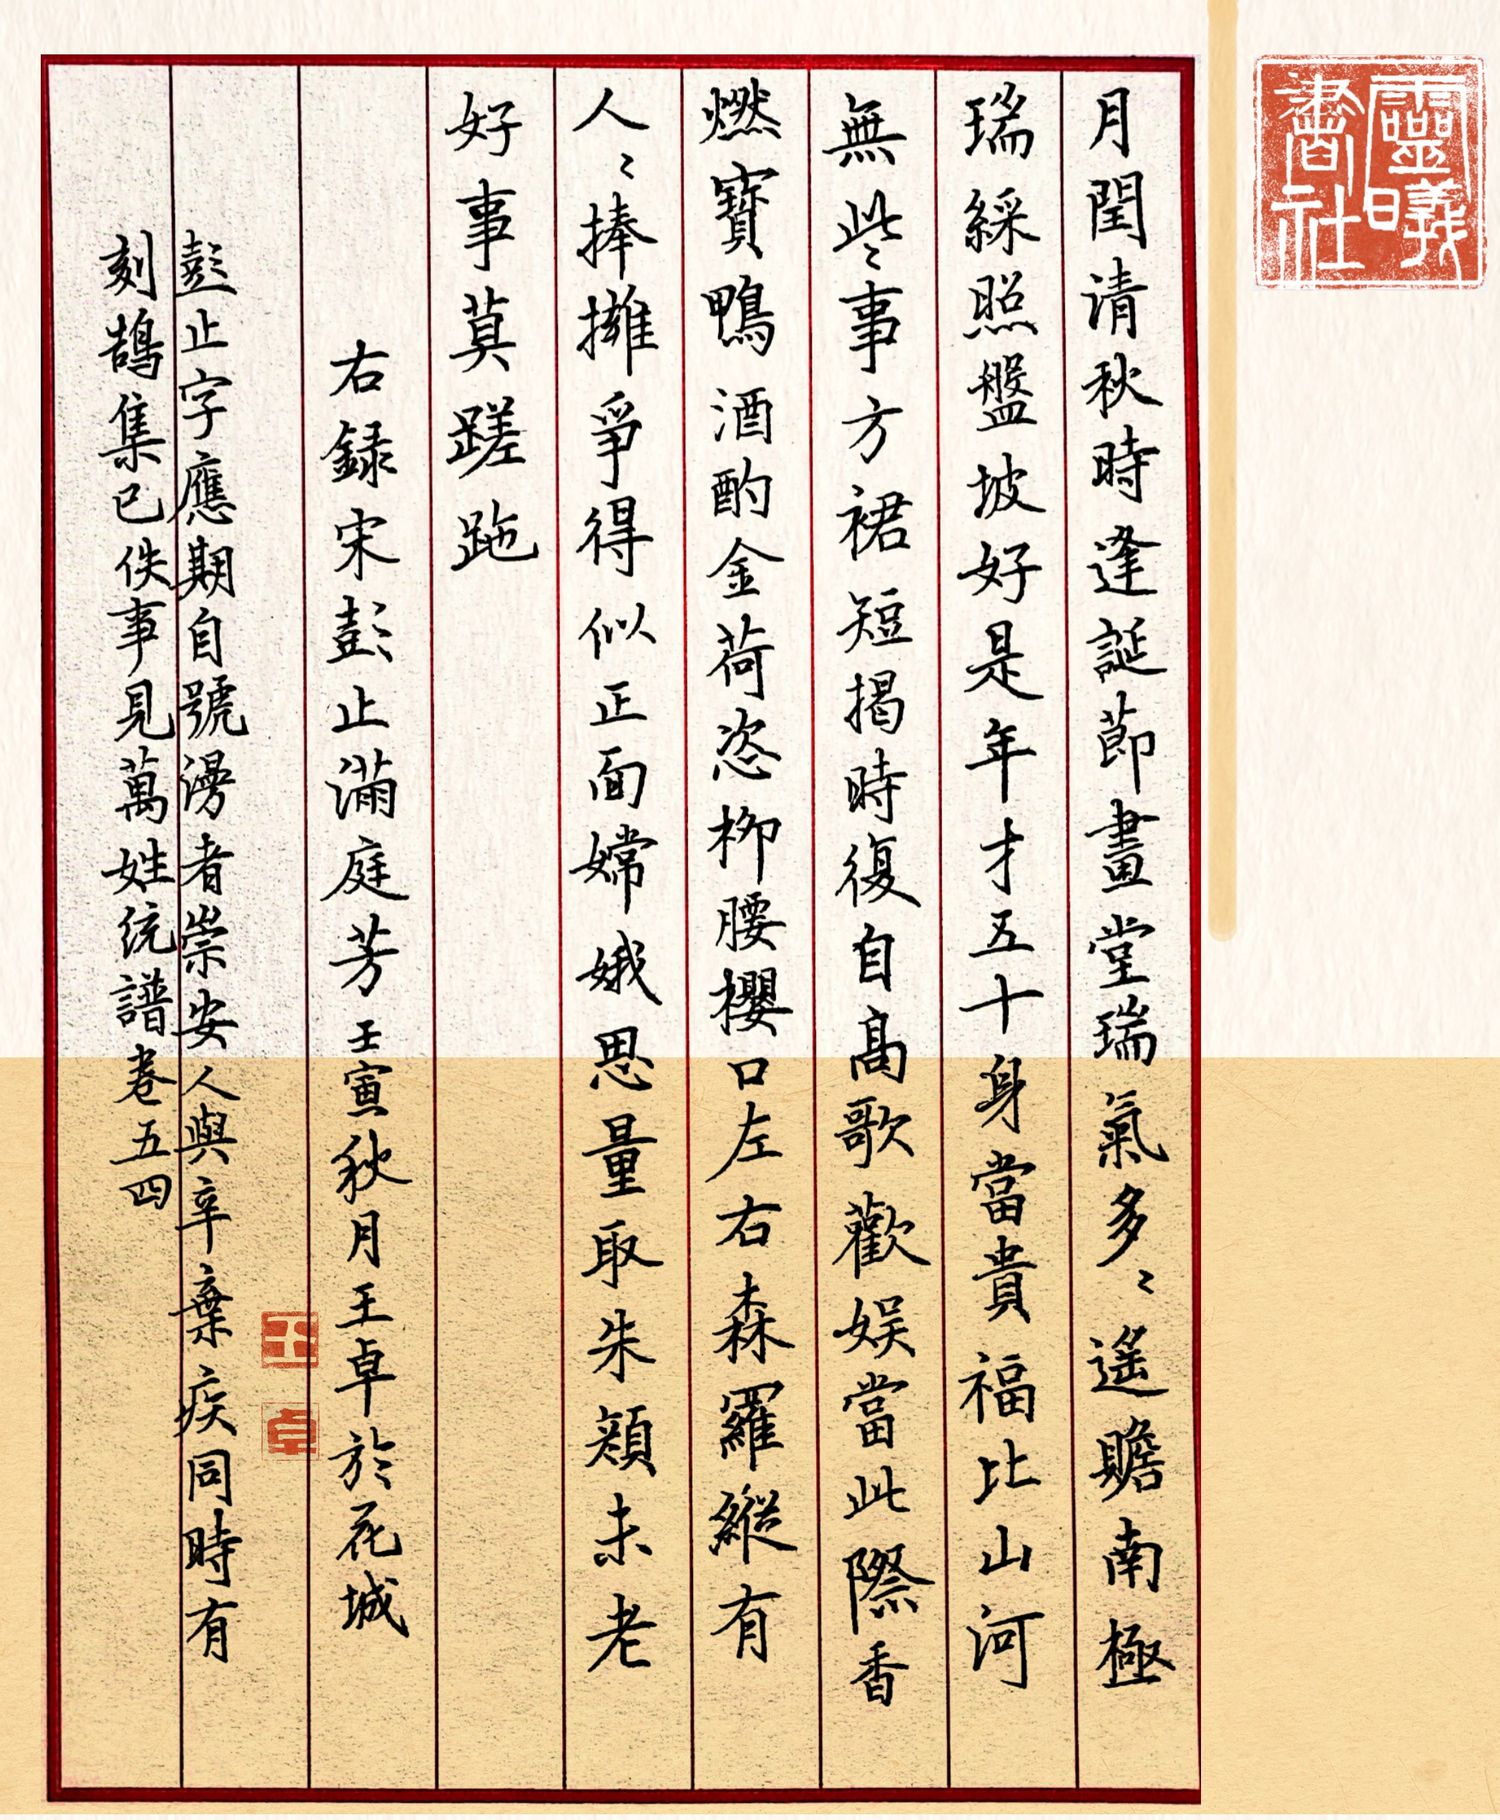 月閏清秋時逢誕節畫堂瑞氣多〻遙瞻南極
瑞綵照盤坡好是年才五十身當貴福比山河
無些〻事方裙短揭時復自高歌歡娛當此際香
燃寶鴨酒酌金荷恣柳腰櫻口左右森羅縱有
人〻捧擁爭得似正面嫦娥思量取朱顏未老
好事莫蹉跎
右録宋彭止滿庭芳壬寅秋月王卓於花城
彭止字應期自號漫者崇安人與辛棄疾同時有
刻鵠集已佚事見萬姓統譜卷五四
靈曦書社
王卓